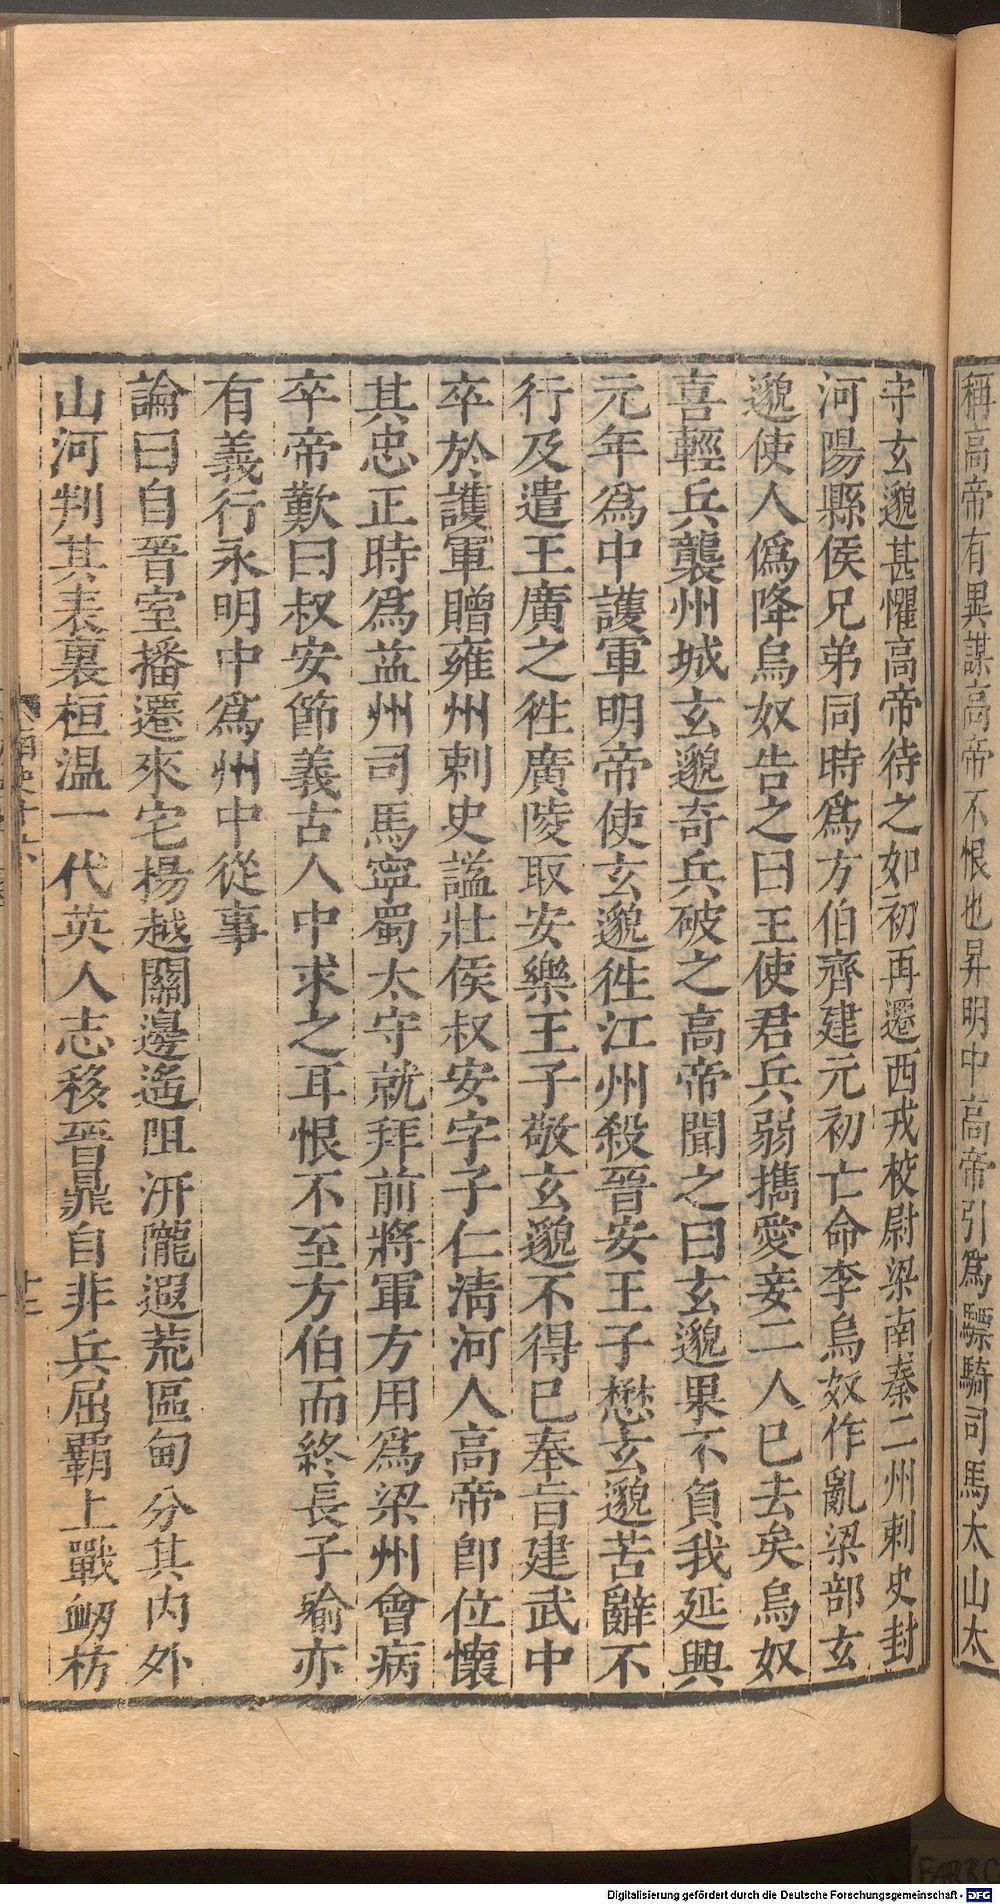 稱高帝有異謀高帝不恨也昇明中高帝引爲驃騎司馬太山太
守玄邈甚懼高帝待之如初再遷西戎校尉梁南秦二州刺史封
河陽縣侯兄弟同時爲方伯齊建元初亡命李烏奴作亂梁部玄
邈使人僞降烏奴告之曰王使君兵弱攜愛妾二人已去矣烏奴
喜輕兵襲州城玄邈奇兵破之高帝聞之曰玄邈果不負我延興
元年爲中護軍明帝使玄邈徃江州殺晉安王子懋玄邈苦辭不
行及遣王廣之徃廣陵取安樂王子敬玄邈不得已奉旨建武中
卒於護軍贈雍州刺史謚壯侯叔安字子仁淸河人高帝卽位懷
其忠正時爲益州司馬寧蜀太守就拜前將軍方用爲梁州會病
卒帝歎曰叔安節義古人中求之耳恨不至方伯而終長子瑜亦
有義行永明中爲州中從事
論曰自晉室播遷來宅楊越關邊遙阻汧隴遐荒區甸分其内外
山河判其表裏桓温一代英人志移晉鼎自非兵屈覇上戰衂枋
十三
Digitalisierung gefördert durch die Deutsche Forschungsgemeinschaft - DFG